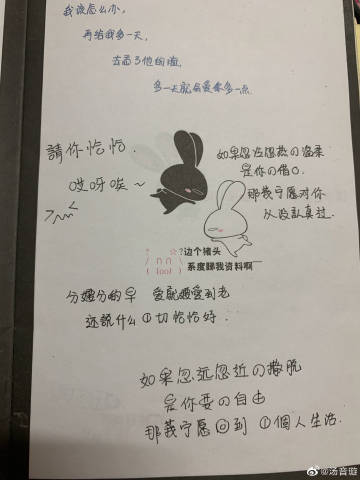 我该怎么办,
再给我多一天,
去看了他的脸,
多一天就会爱你多一点.
請你恰恰.
哎呀唉~
如果忽冷忽热の温柔
是你の借口.
那我宁愿对你
从没认真过.
?边个猪头
系度睇我资料啊
分嘅分的早 爱就爱到老
还说什么①切恰恰好.
如果忽远忽近の撒脱
是你要の自由
那我宁愿回到 ①個人生活.
@汤音璇